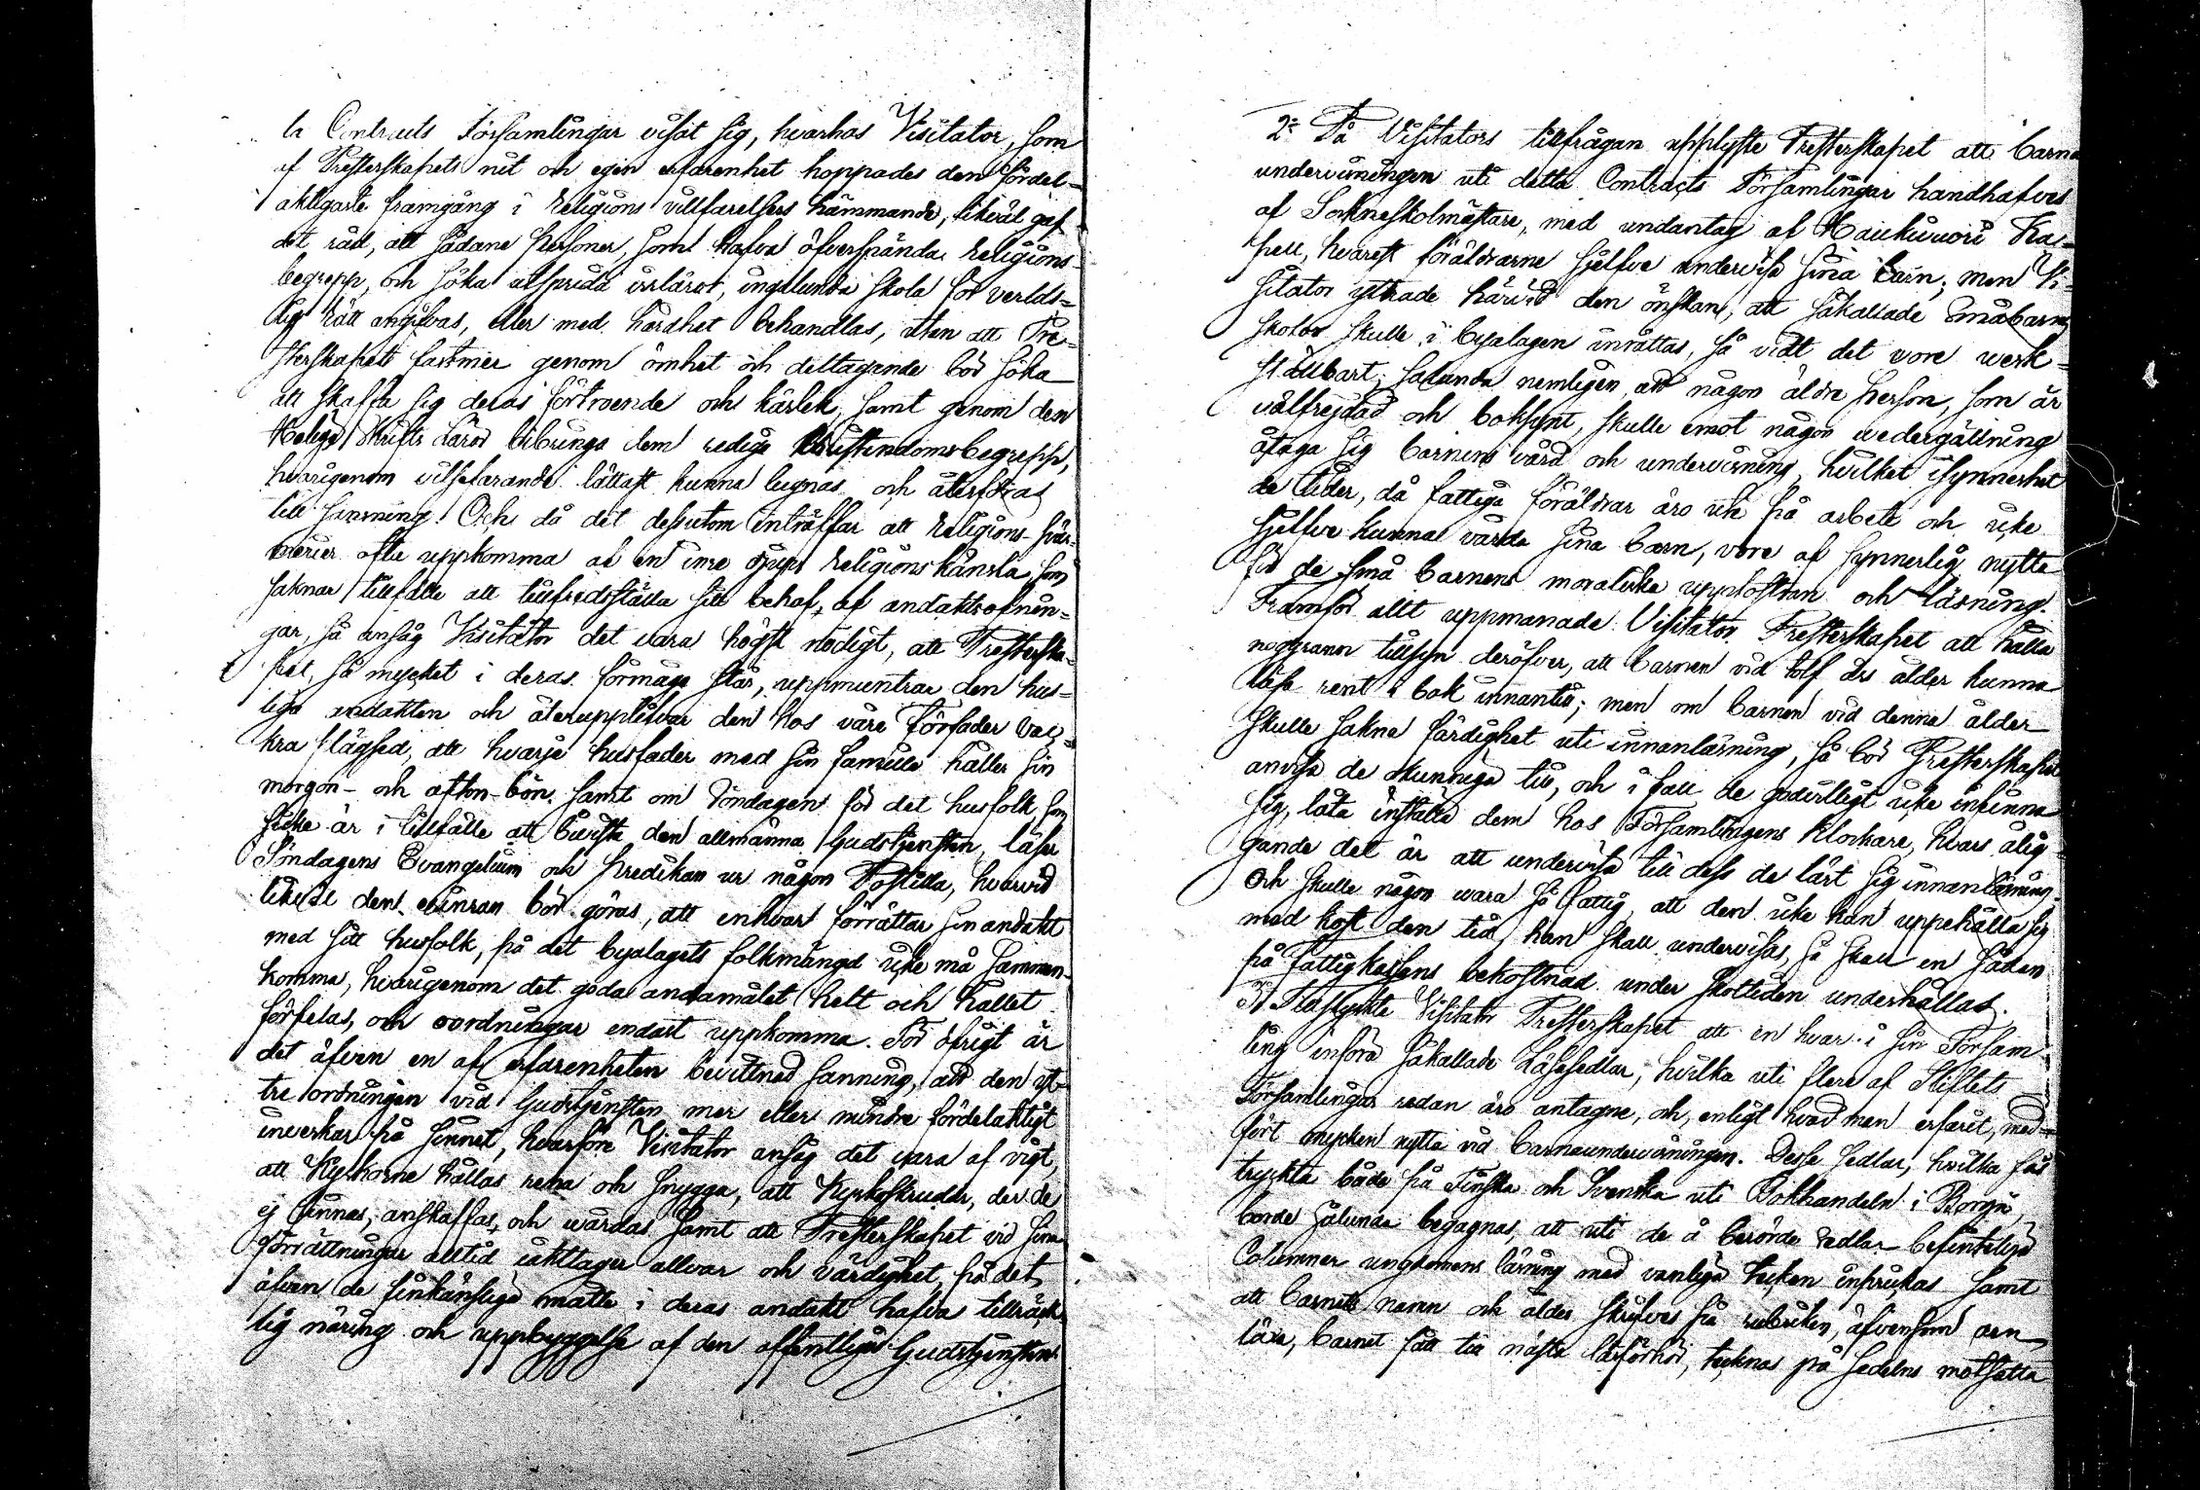 la Contracts Församlingar visat sig, hvarhos Visitator, som
af Presterskapets nit och egen erfarenhet hoppades den fördel-
aktigaste framgång i Religions villfarelsers hämmande, likväl gaf
det råd, att sådane personer, som hafva öfverspända religions-
begrepp, och söka utsprida irrläror, ingalunda skola för verlds-
lig Rätt angifvas, eller med hårdhet behandlas, utan att Pre-
sterskapet fastmer genom ömhet och deltagande bör söka
att skaffa sig deras förtroende och kärlek, samt genom den
Heliga Skrifts Läror bibringa dem rediga Kristendomsbegrepp,
hvarigenom villfarande lättast kunna lugnas och återföras
till sansning. Och då det dessutom inträffar att Religions-svär-
merier ofta uppkomma af en inre djup Religionskänsla, som
saknar tillfälle att tillfredsställa sitt behof af andaktsöfnin-
gar, så ansåg Visitator det vara högst nödigt, att Prestersка-
pet, så mycket i deras förmåga står, uppmuntrar den hus-
liga andakten och återupplifvar den hos våre Förfäder vac-
kra plägsed, att hvarje husfader med sin familie håller sin
morgon- och afton-bön, samt om Söndagen för det husfolk, som
icke är i tillfälle att bivista den allmänna Gudstjensten, läser
Söndagens Evangelium och Predikan ur någon Postilla, hvarvid
likväl den erinran bör göras, att enhvar förrättar sin andakt
med sitt husfolk, på det byalagets folkmängd icke må samman-
komma, hvarigenom det goda andamålet helt och hållet
förfelas, och oordningar endast uppkomma. För öfrigt är
det äfven en af erfarenheten bevittnad sanning, att den yt-
tre ordningen vid Gudstjensten mer eller mindre fördelaktigt
inverkar på sinnet, hvarföre Visitator ansåg det vara af vigt,
att Kyrkorne hållas rena och snygga, att Kyrkoskrudar, der de
ej finnas, anskaffas, och wårdas samt att Presterskapet vid sina
förrättningar alltid iakttager allvar och värdighet, på det
äfven de finkänslige måtte i deras andakt hafva tillräck-
lig näring och uppbyggelse af den offentliga Gudstjensten.
2:o På Visitators tillfrågan upplyste Presterskapet att barna
undervisningen uti detta Contracts Församlingar handhafves
af Sockneskolmästare, med undantag af Haukivuori Ka-
pell, hvarest föräldrarne sjelfve undervisa sina barn; men Vi-
sitator yttrade härvid den önskan, att såkallade Småbarns
skolor skulle i byalagen inrättas, så vidt det vore werk-
ställbart; sålunda nemligen, att någon äldre person, som är
välfrejdad och boksynt, skulle emot någon wedergällning
åtaga sig barnens vård och undervisning, hvilket isynnerhet
de tider, då fattiga föräldrar äro ute på arbete och icke
sjelfve kunna vårda sina barn, vore af synnerlig nytta
för de små barnens moraliska uppfostran och läsning.
Framför allt uppmanade Visitator Presterskapet att hålla
noggrann tillsyn deröfver, att barnen vid tolf års ålder kunna
läsa rent i bok innantill; men om barnen vid denna ålder
skulle sakna färdighet uti innanläsning, så bör Presterskapet
anvisa de okunniga till, och i fall de godvilligt icke infinna
sig, låta inställa dem hos Församlingens Klockare, hvars ålig-
gande det är att undervisa till dess de lärt sig innanläsning.
Och skulle någon wara så fattig, att den icke kan uppehålla sig
med kost den tid, han skall undervisas, så skall en sådan
på fattigkassans bekostnad under skoltiden underhållas.
3:o Tillstyrkte Visitator Presterskapet att en hvar i sin Försam-
ling införa såkallade Läsesedlar, hvilka uti flere af Stiftets
Församlingar redan äro antagne, och, enligt hvad man erfarit, med-
fört mycken nytta vid barnaundervisningen. Desse sedlar, hvilka fås
tryckta både på Finska och Svenska uti Bokhandeln i Borgå,
borde sålunda begagnas, att uti de å berörde sedlar befinteliga
Columner ungdomens läsning med vanliga tecken inprickas samt
att barnets namn och ålder skrifves på rubriken, äfvensom den
läxa, barnet fått till nästa läsförhör, tecknas på sedelns motsatta